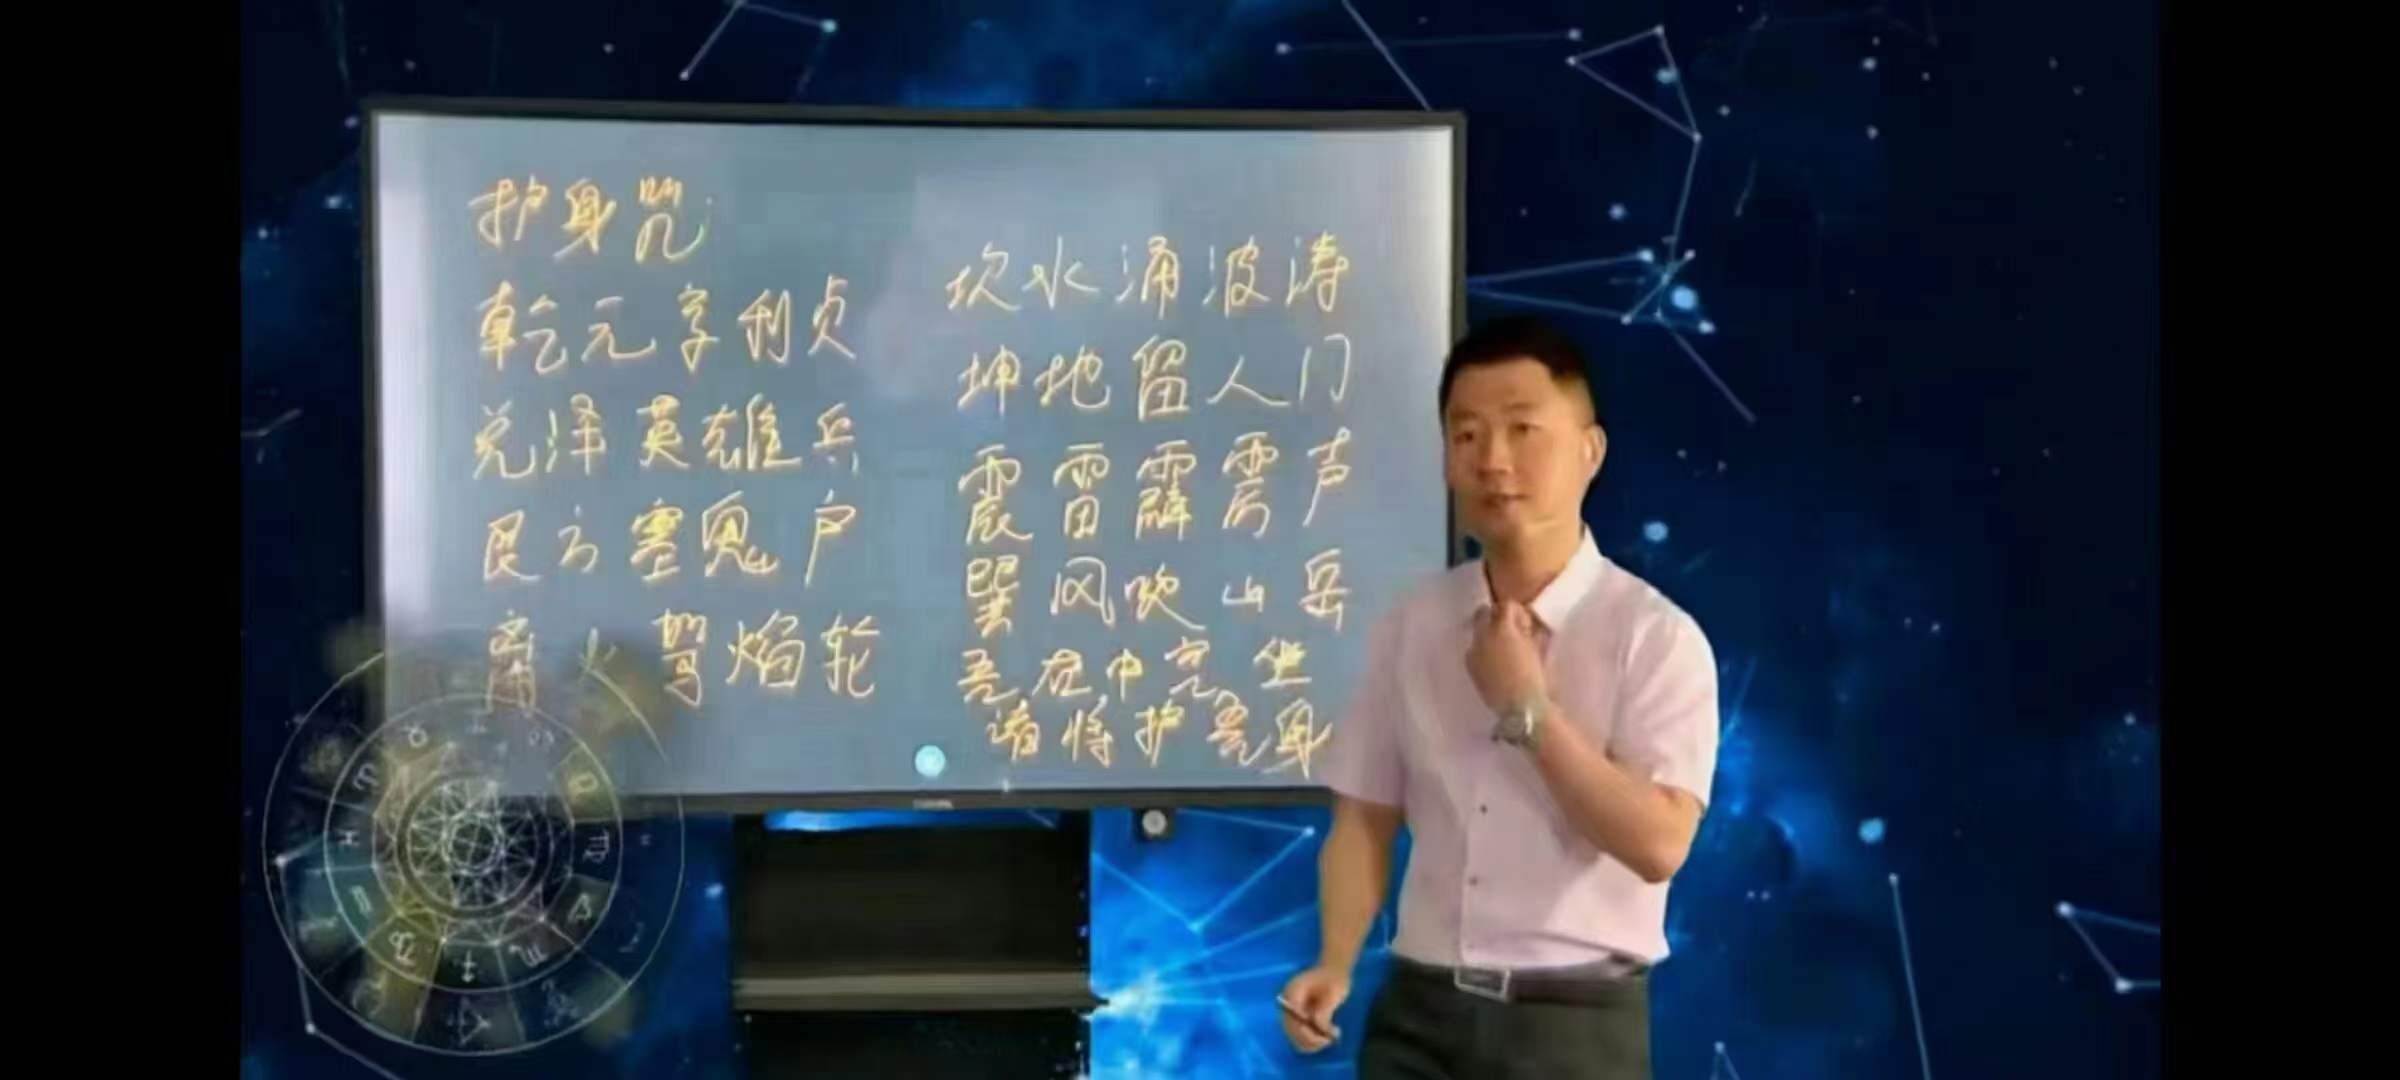 护身咒
乾元亨利贞
兑泽英雄兵
艮方塞鬼户
离火驾焰轮
坎水涌波涛
坤地留人门
震雷霹雳声
巽风吹山岳
吾在中宫坐
诸将护吾身